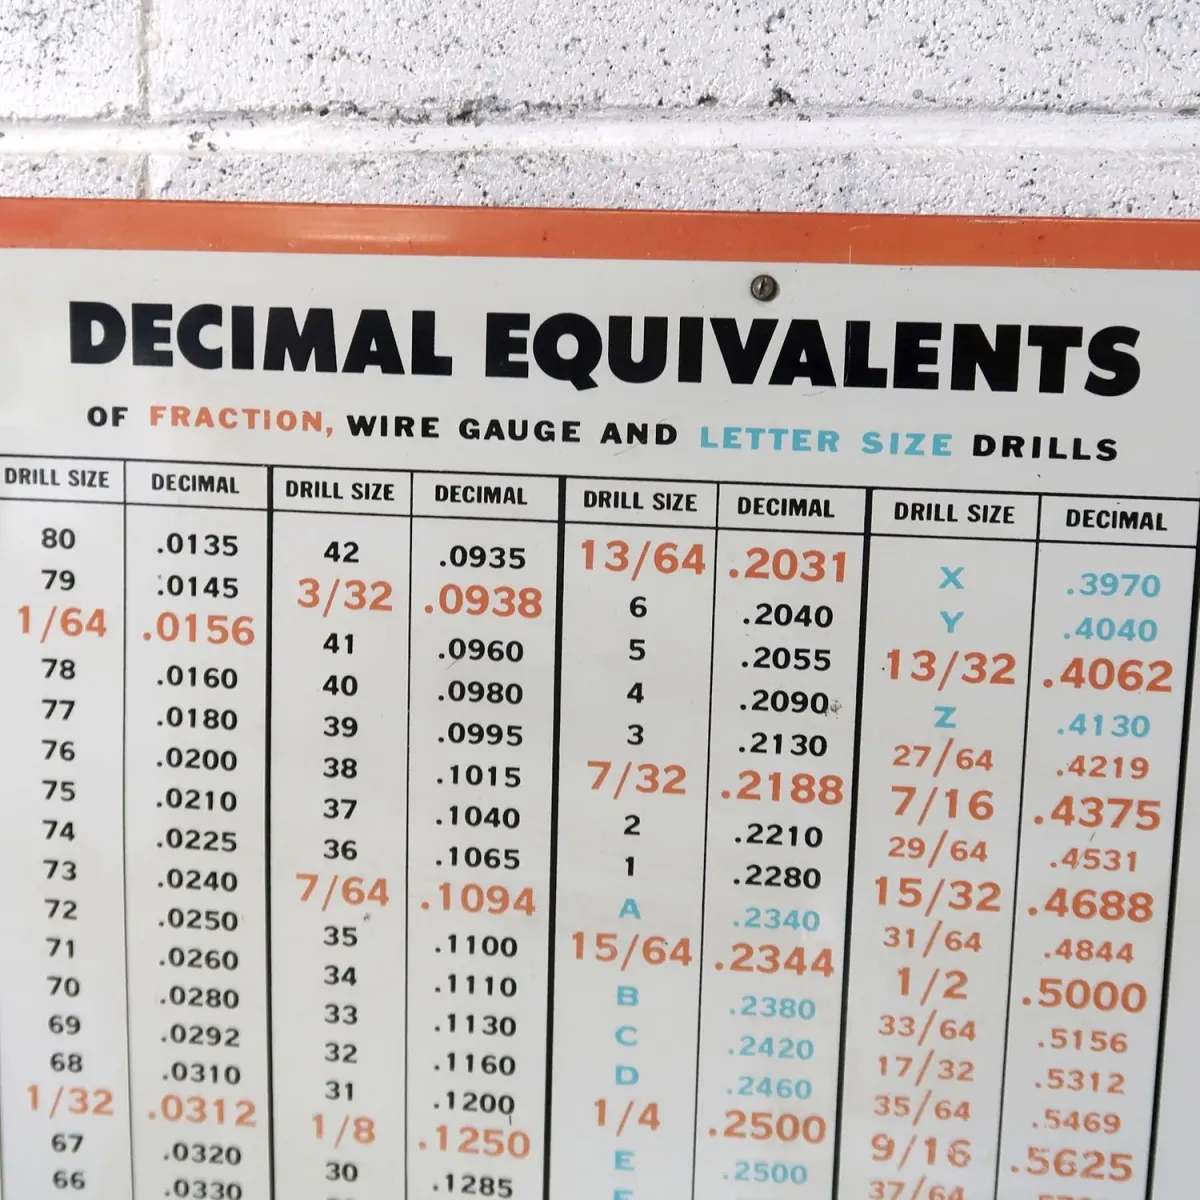 DECIMAL EQUIVALENTS
OF FRACTION, WIRE GAUGE AND LETTER SIZE DRILLS
DRILL SIZE DECIMAL DRILL SIZE DECIMAL DRILL SIZE DECIMAL DRILL SIZE DECIMAL
80 .0135
79 .0145
1/64 .0156
78 .0160
77 .0180
76 .0200
75 .0210
74 .0225
73 .0240
72 .0250
71 .0260
70 .0280
69 .0292
68 .0310
1/32 .0312
67 .0320
66 .0330
42 .0935
3/32 .0938
41 .0960
40 .0980
39 .0995
38 .1015
37 .1040
36 .1065
7/64 .1094
35 .1100
34 .1110
33 .1130
32 .1160
31 .1200
1/8 .1250
30 .1285
13/64 .2031
6 .2040
5 .2055
4 .2090
3 .2130
7/32 .2188
2 .2210
1 .2280
A .2340
15/64 .2344
B .2380
C .2420
D .2460
1/4 .2500
E .2500
X .3970
Y .4040
13/32 .4062
Z .4130
27/64 .4219
7/16 .4375
29/64 .4531
15/32 .4688
31/64 .4844
1/2 .5000
33/64 .5156
17/32 .5312
35/64 .5469
9/16 .5625
37/64